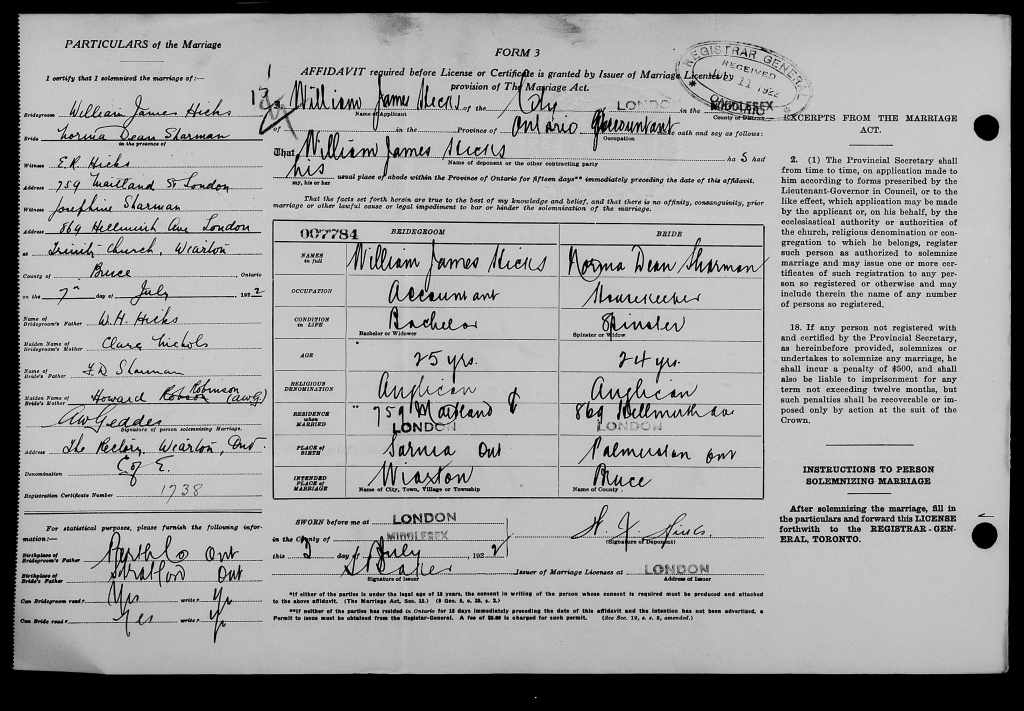 PARTICULARS of the Marriage
I certify that I solemnized the marriage of:—
Bridegroom William James Hicks
Bride Norma Dean Sharman
in the presence of
Witness E.R. Hicks
Address 759 Maitland St London
Witness Josephine Sharman
Address 869 Hellmuth Ave London
at Trinity Church, Wiarton
County of Bruce Ontario
on the 7th day of July 1922
Name of Bridegroom's Father W.H. Hicks
Maiden Name of Bridegroom's Mother Clara Nichols
Name of Bride's Father F.D. Sharman
Maiden Name of Bride's Mother Howard Robinson (AWG)
AW Geddes
Signature of person solemnizing Marriage.
Address The Rectory, Wiarton, Ont.
Denomination C of E.
Registration Certificate Number 1738
For statistical purposes, please furnish the following information:—
Birthplace of Bridegroom's Father Ont
Birthplace of Bride's Father Stratford Ont
Can Bridegroom read? Yes write? Ys
Can Bride read? Yes write? Ys
FORM 3
AFFIDAVIT required before License or Certificate is granted by Issuer of Marriage Licenses by
provision of The Marriage Act.
REGISTRAR GENERAL
RECEIVED
11 1922
ONTARIO
I, William James Hicks of the City LONDON in the MIDDLESEX
Name of Applicant
County or District
of in the Province of Ontario Accountant oath and say as follows:
Occupation
That William James Hicks ha s had
Name of deponent or the other contracting party
his usual place of abode within the Province of Ontario for fifteen days** immediately preceding the date of this affidavit.
my, his or her
That the facts set forth herein are true to the best of my knowledge and belief, and that there is no affinity, consanguinity, prior
marriage or other lawful cause or legal impediment to bar or hinder the solemnization of the marriage.
007784 BRIDEGROOM BRIDE
NAMES in full William James Hicks Norma Dean Sharman
OCCUPATION Accountant Housekeeper
CONDITION in LIFE Bachelor Spinster
Bachelor or Widower Spinster or Widow
AGE 25 yrs. 24 yrs.
RELIGIOUS DENOMINATION Anglican Anglican
RESIDENCE when MARRIED 759 Maitland St LONDON 869 Hellmuth Ave LONDON
PLACE of BIRTH Sarnia Ont Palmerston Ont
INTENDED PLACE of MARRIAGE Wiarton Bruce
Name of City, Town, Village or Township Name of County
SWORN before me at LONDON
in the County of MIDDLESEX
this 3 day of July 1922
W. J. Hicks.
(Signature of Deponent)
Baker
Signature of Issuer
Issuer of Marriage Licenses at LONDON
Address of Issuer
*If either of the parties is under the legal age of 18 years, the consent in writing of the person whose consent is required must be produced and attached
to the above affidavit. (The Marriage Act, Sec. 15.)
**If neither of the parties has resided in Ontario for 15 days immediately preceding the date of this affidavit and the intention has not been advertised, a
Permit to issue must be obtained from the Registrar-General. A fee of is charged for such permit. (See Sec. 19, s. s. 2, amended.)
EXCERPTS FROM THE MARRIAGE
ACT.
2. (1) The Provincial Secretary shall
from time to time, on application made to
him according to forms prescribed by the
Lieutenant-Governor in Council, or to the
like effect, which application may be made
by the applicant or, on his behalf, by the
ecclesiastical authority or authorities of
the church, religious denomination or con-
gregation to which he belongs, register
such person as authorized to solemnize
marriage and may issue one or more cer-
tificates of such registration to any per-
son so registered or otherwise and may
include therein the name of any number
of persons so registered.
18. If any person not registered with
and certified by the Provincial Secretary,
as hereinbefore provided, solemnizes or
undertakes to solemnize any marriage, he
shall incur a penalty of $500, and shall
also be liable to imprisonment for any
term not exceeding twelve months, but
such penalties shall be recoverable or im-
posed only by action at the suit of the
Crown.
INSTRUCTIONS TO PERSON
SOLEMNIZING MARRIAGE
After solemnizing the marriage, fill in
the particulars and forward this LICENSE
forthwith to the REGISTRAR-GEN-
ERAL, TORONTO.